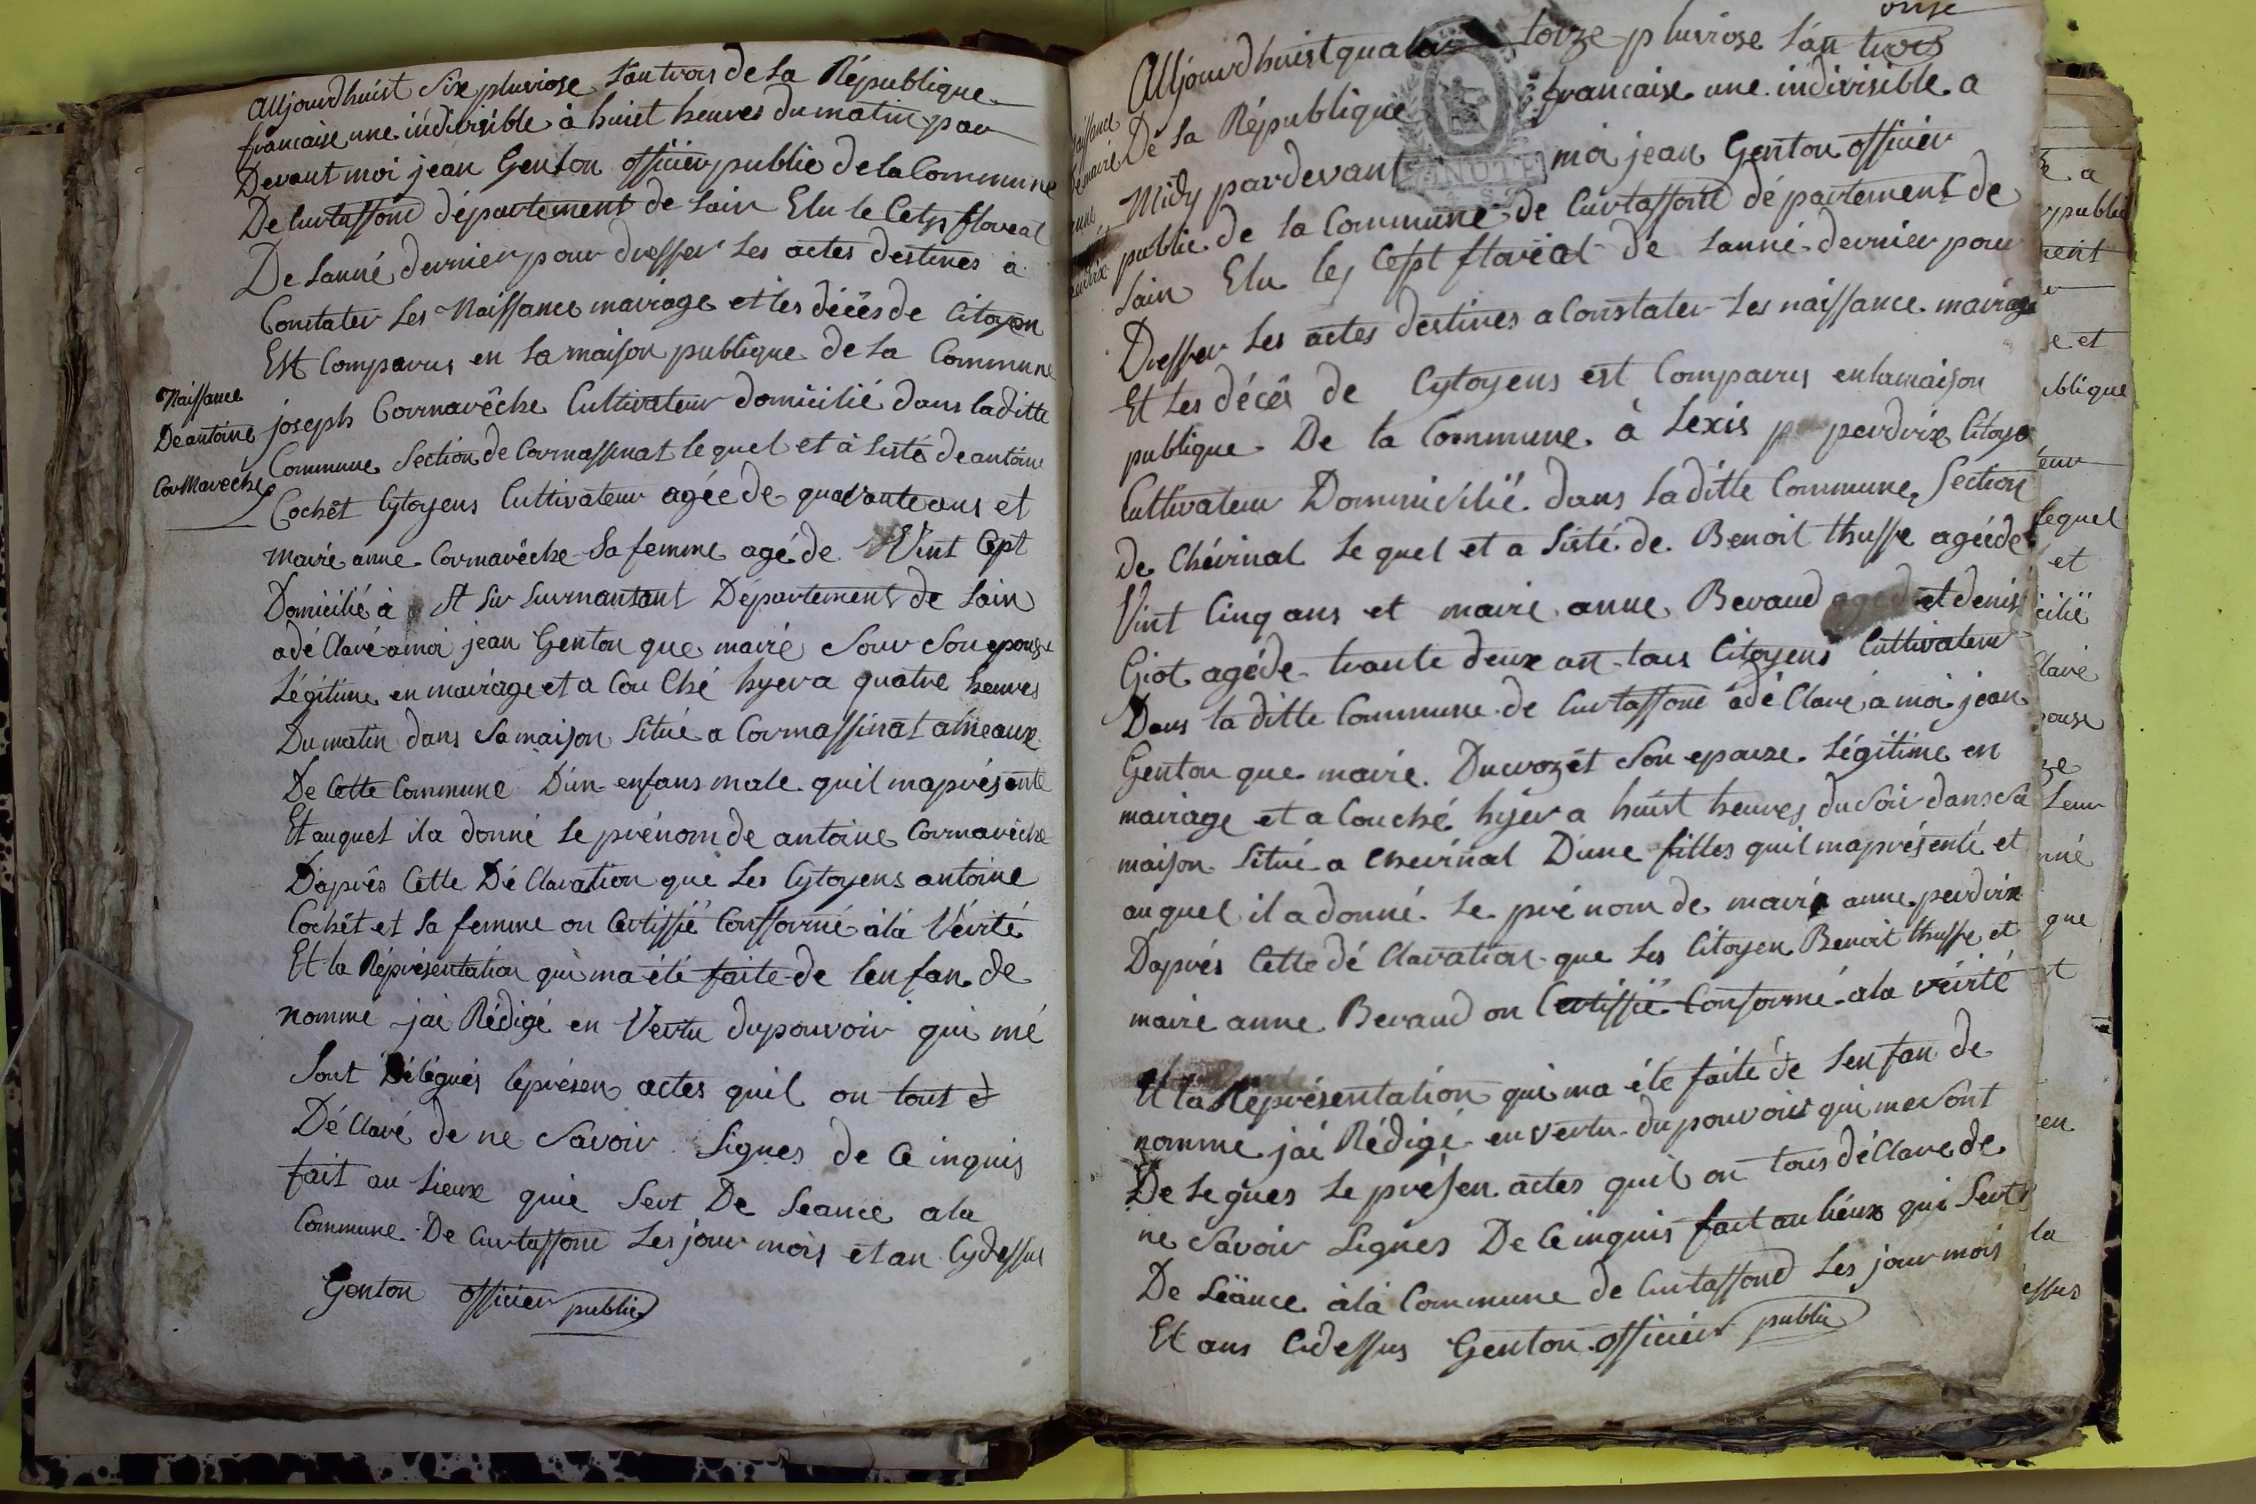 Aujourdhuist Six pluviose Lan trois de La République
francaise une indivisible à huist heures du matin par
Devant moi jean Genton officier public de la Commune
De Curtaffond département de Lain Elu le Cetps floreal
De Lanné dernier pour dresser Les actes destines a
Constater Les Naissance mairiage et les décês de Citoyen
Est Comparus en La maison publique de La Commune
Naissance
De antoine
CorMareche
joseph Cormarêche Cultivateur domicilié dans laditte
Commune Section de Cormassinat lequel et à Sisté de antoine
Cochêt Cytoyens Cultivateur agée de quarante ans et
mairé anne Cormarêche Sa femme agé de Vint Cept
Domicilié à St Sur Département de Lain
adé Claré a moi jean Genton que mairé Sour Son epouse
Légitime en mairiage et a Cou Ché hyer a quatre heures
Du matin dans Sa maison Situé a Cormassinat ameaux
De Cette Commune D'un enfans male quil ma présenté
Et auquel il a donné Le prénom de antoine Cormarêche
Daprês Cette Dé Claration que Les Cytoyens antoine
Cochêt et Sa femme on Certiffié Confformé à la Vérité
Et la Représentation qui ma été faite de lenfan de
nommé jai Rédigé en Vertu du pouvoir qui mé
Sont Délégués le présen actes quil on tout é
Dé Claré de ne Savoir Signes de Ce inquis
fait au Lieux quie Sert De Seance a la
Commune De Curtaffond Les jour mois et an Cydessus
Genton officier public
Aujourdhuist quatorze pluviose Lan trois
De la République francaise une indivisible a
Midy pardevant moi jean Genton officier
public de la Commune de Curtaffond département de
Lain Elu les Cept floréal de Lanné dernier pour
Dresser Les actes destines a Constater Les naissance mairiage
Et Les décês de Cytoyens est Comparus en la maison
publique De la Commune à Lexis perdrix Citoye
Cultivateur Domnicilié dans laditte Commune Section
de Chévinal Le quel et a Sisté de Benoit thuffe agée de
Vint Cinq ans et mairé anne Beraud aged et denis
Giot agé de trante deux an tous Citoyens Cultivateur
Dans la ditte Commune de Curtaffond adé Claré a moi jean
Genton que mairé Ducrozêt Son epouze Légitime en
mairiage et a Couché hyer a huist heures du Soir dans Sa
maison Situé a Chévinal Dune filles quil ma présenté et
auquel il a donné Le prénom de mairé anne perdrix
Daprés Cette dé Claration que Les Citoyen Benoit thuffe et
mairé anne Beraud on Certiffié Conformé a la véirité
Et la Représentation qui ma éte faité de Lenfan de
nomme jai Rédigé en vertu du pouvoir qui me Sont
De Legues Le présen actes quil on tous dé Clare de
ne Savoir Signes De Ce inquis fait au Lieux qui Sert
De Séance à la Commune de Curtaffond Les jour mois
Et ans Cidessus Genton officier public